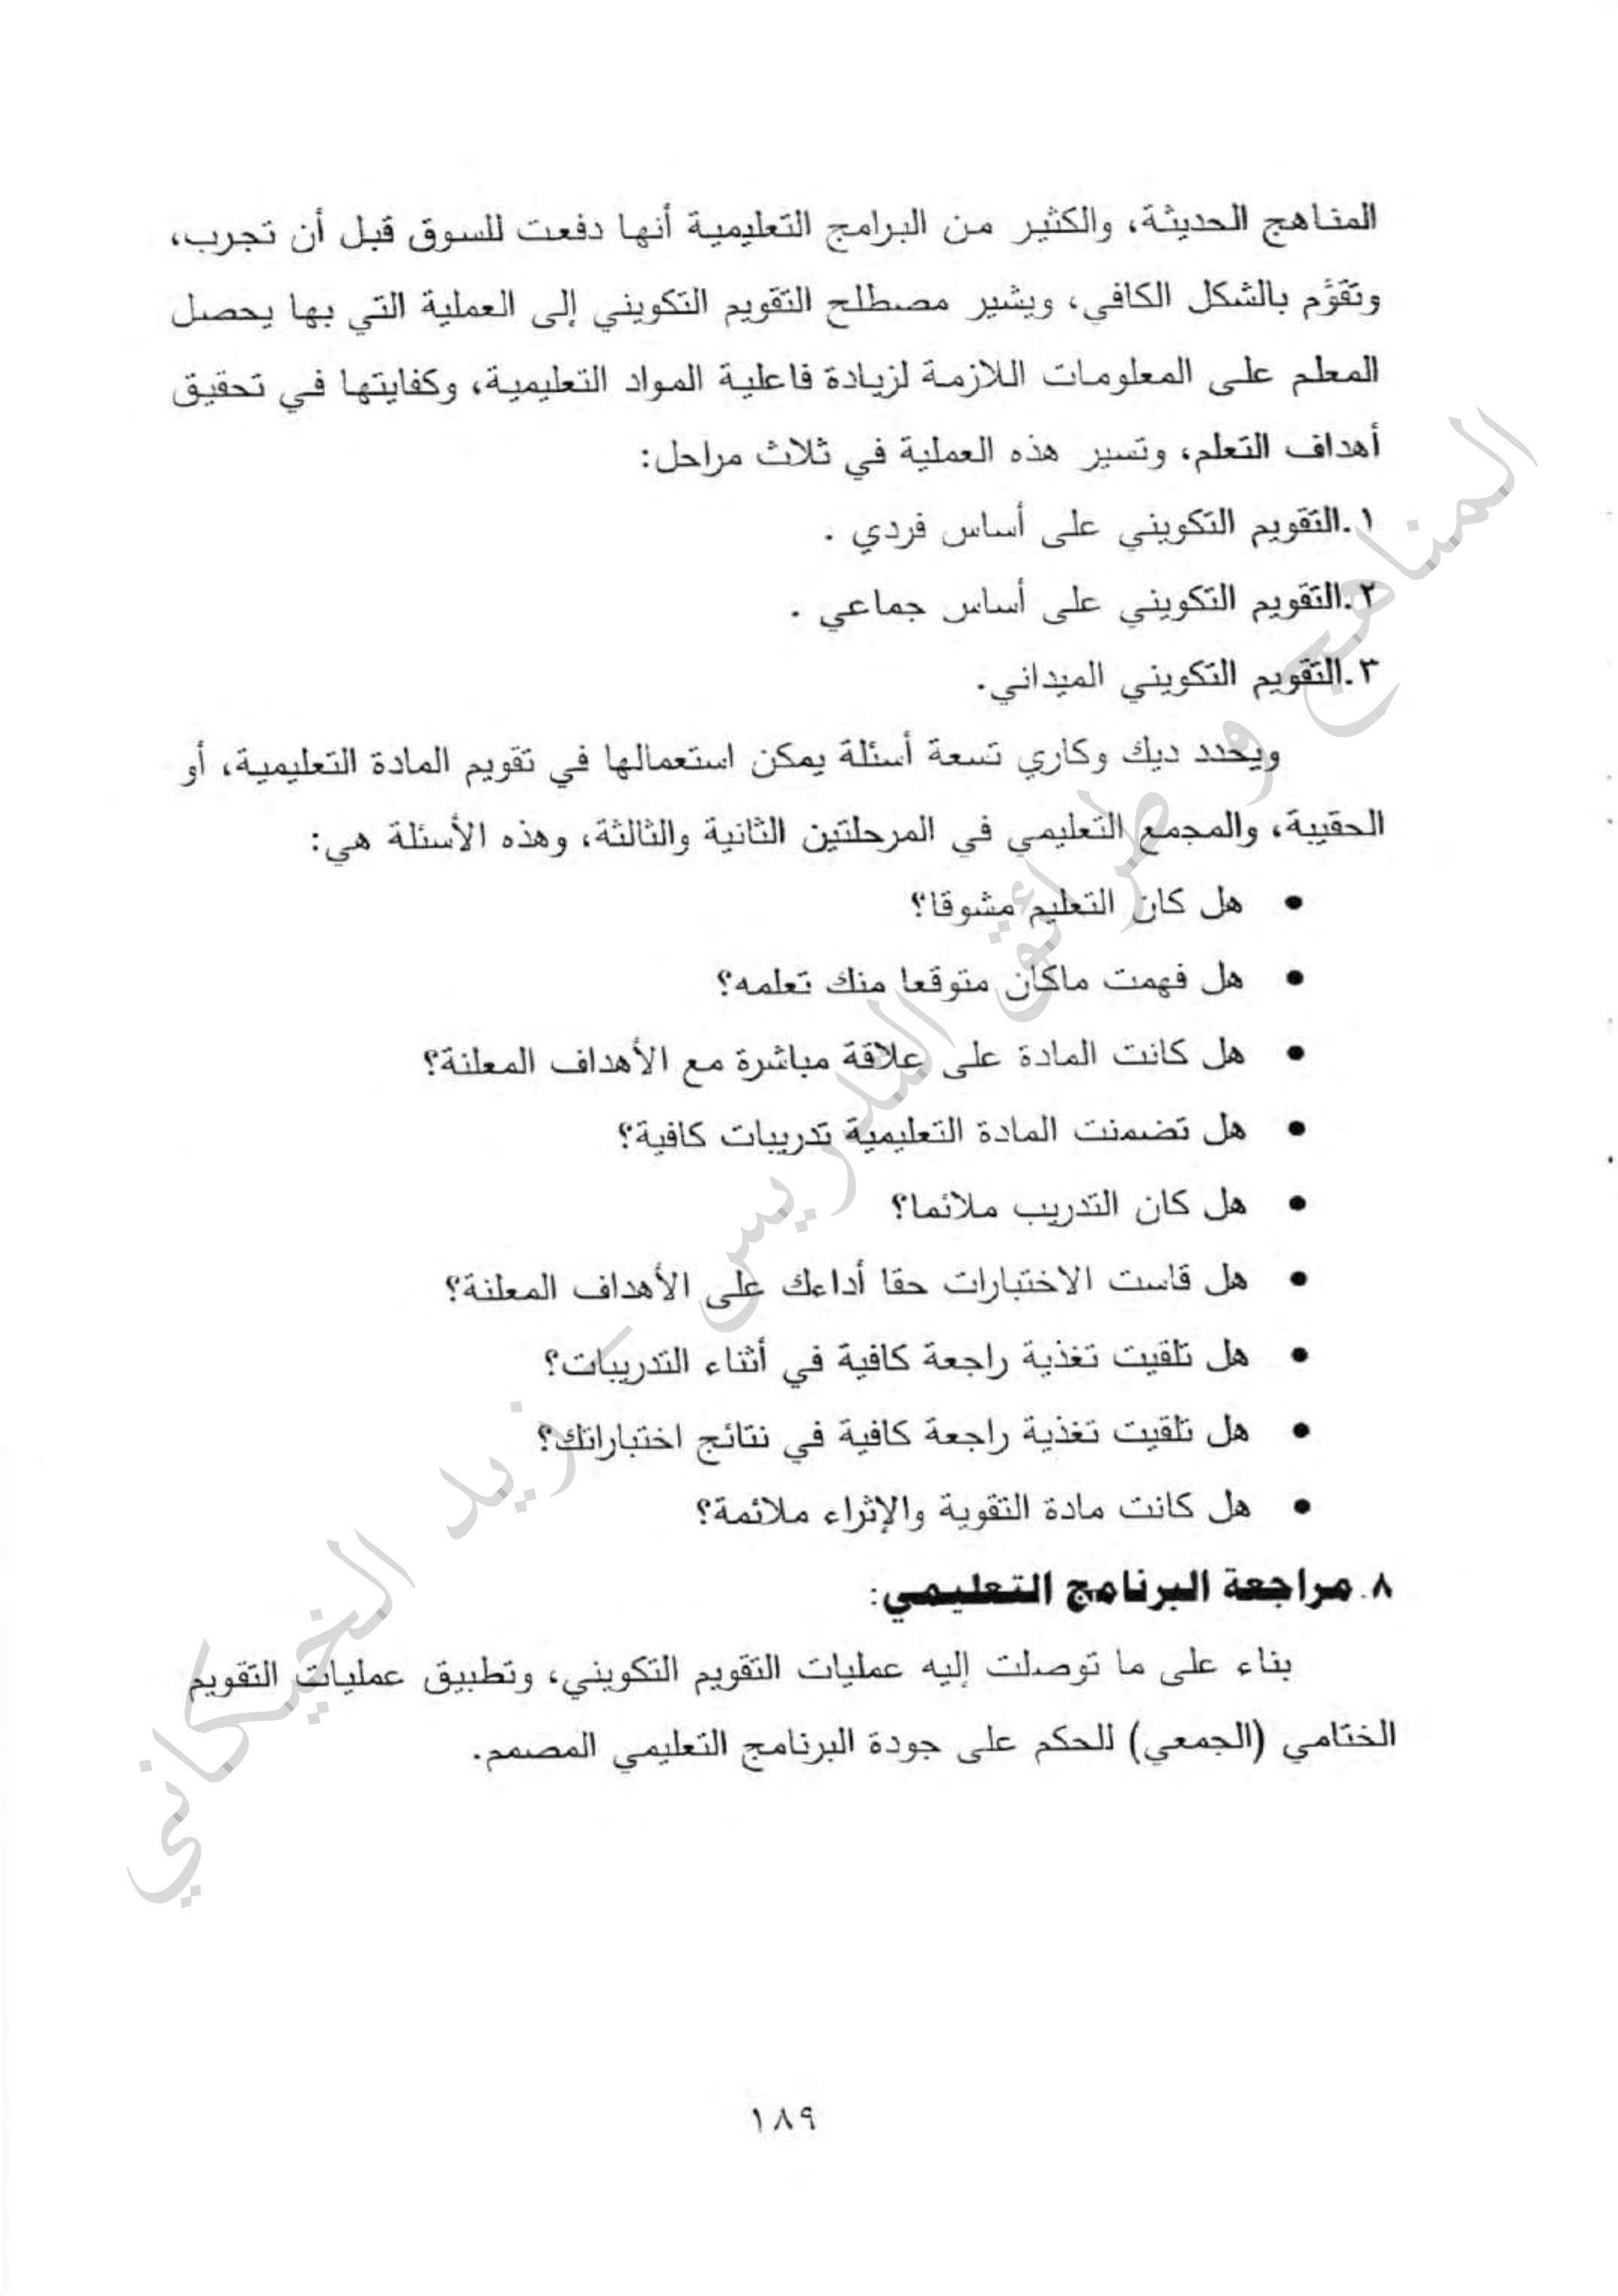 المناهج الحديثة، والكثير من البرامج التعليمية أنها دفعت للسوق قبل أن تجرب،
وتقوَّم بالشكل الكافي، ويشير مصطلح التقويم التكويني إلى العملية التي بها يحصل
المعلم على المعلومات اللازمة لزيادة فاعلية المواد التعليمية، وكفايتها في تحقيق
أهداف التعلم، وتسير هذه العملية في ثلاث مراحل:
١.التقويم التكويني على أساس فردي .
٢.التقويم التكويني على أساس جماعي .
٣.التقويم التكويني الميداني.
ويحدد ديك وكاري تسعة أسئلة يمكن استعمالها في تقويم المادة التعليمية، أو
الحقيبة، والمجمع التعليمي في المرحلتين الثانية والثالثة، وهذه الأسئلة هي:
• هل كان التعليم مشوقا؟
• هل فهمت ماكان متوقعا منك تعلمه؟
• هل كانت المادة على علاقة مباشرة مع الأهداف المعلنة؟
• هل تضمنت المادة التعليمية تدريبات كافية؟
• هل كان التدريب ملائما؟
• هل قاست الاختبارات حقا أداءك على الأهداف المعلنة؟
• هل تلقيت تغذية راجعة كافية في أثناء التدريبات؟
• هل تلقيت تغذية راجعة كافية في نتائج اختباراتك؟
• هل كانت مادة التقوية والإثراء ملائمة؟
٨. مراجعة البرنامج التعليمي:
بناء على ما توصلت إليه عمليات التقويم التكويني، وتطبيق عمليات التقويم
الختامي (الجمعي) للحكم على جودة البرنامج التعليمي المصمم.
١٨٩
المناهج و طرائق التدريس – زيد الخيكاني